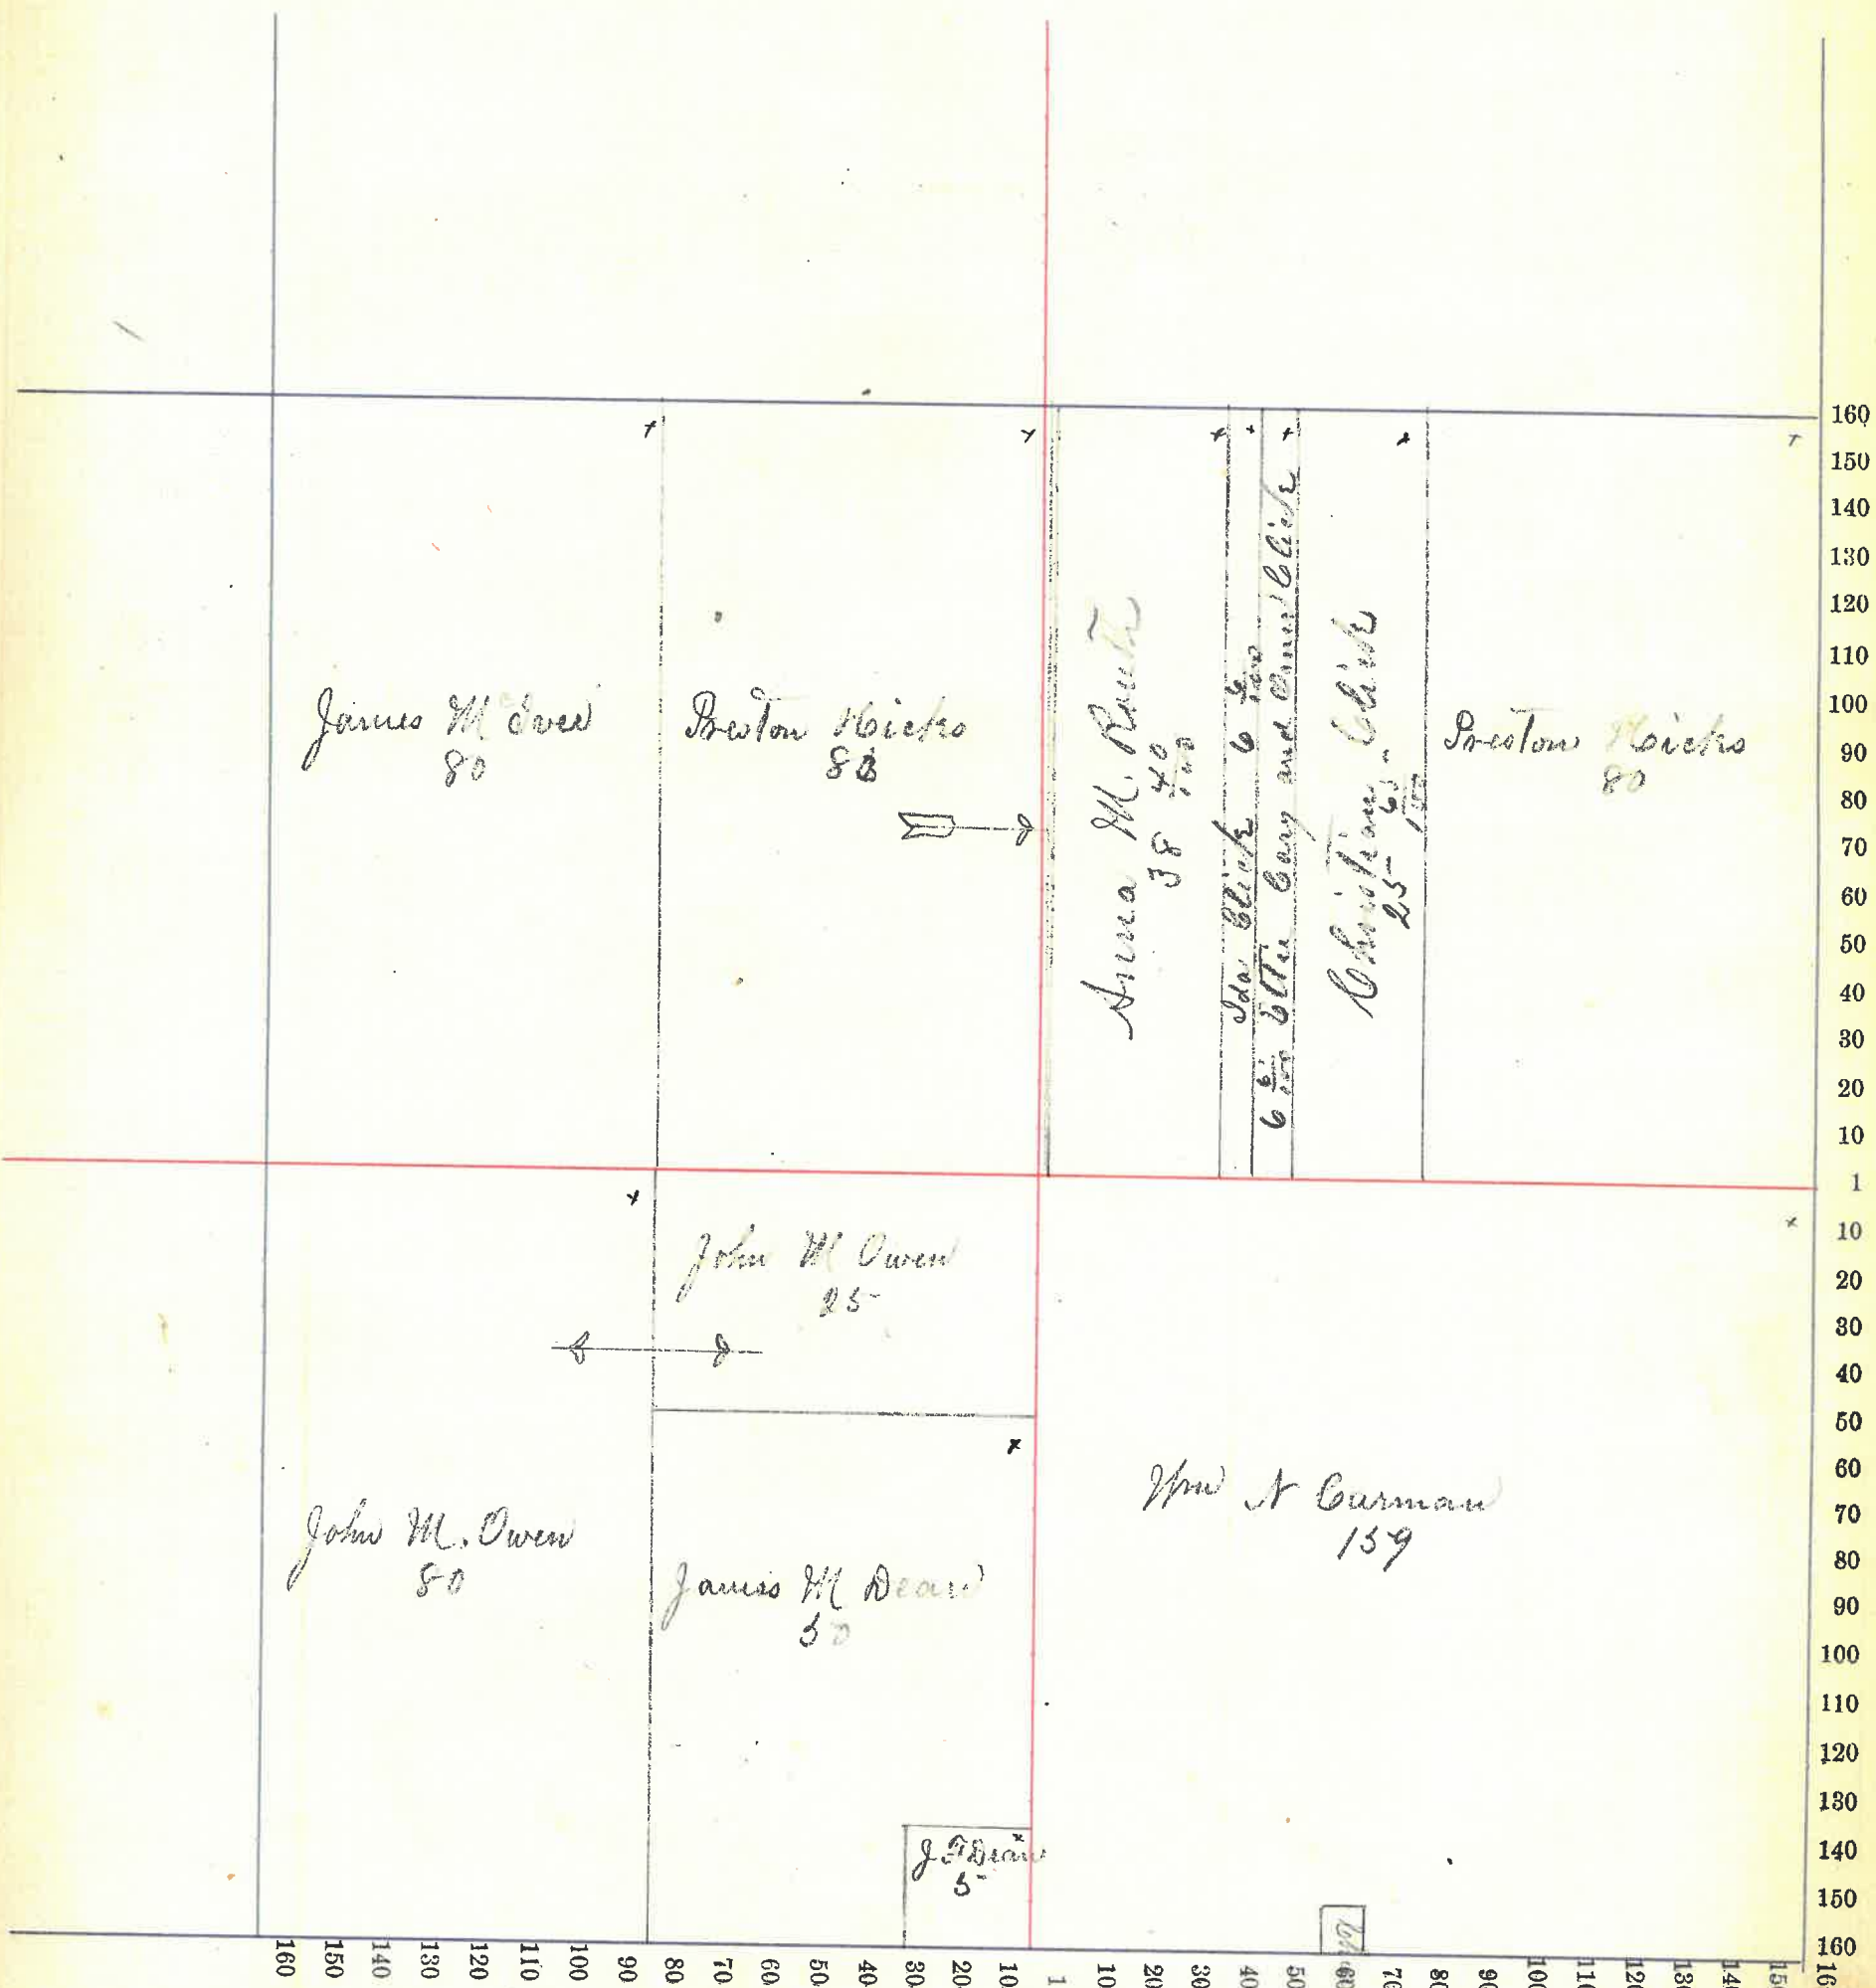 James M
80
Preston Hicks
Anna M. Routh
38 40/100
Ida Click 6 6/100
6 6/100 and Click
Christian Click
25 63/100
Preston Hicks
80
John M Owen
25
John M. Owen
80
James M Dean
50
J F Dean
5
Wm N Carman
159
160
150
140
130
120
110
100
90
80
70
60
50
40
30
20
10
1
10
20
30
40
50
60
70
80
90
100
110
120
130
140
150
160
160 150 140 130 120 110 100 90 80 70 60 50 40 30 20 10 1 10 20 30 40 50 60 70 80 90 100 110 120 130 140 150 160